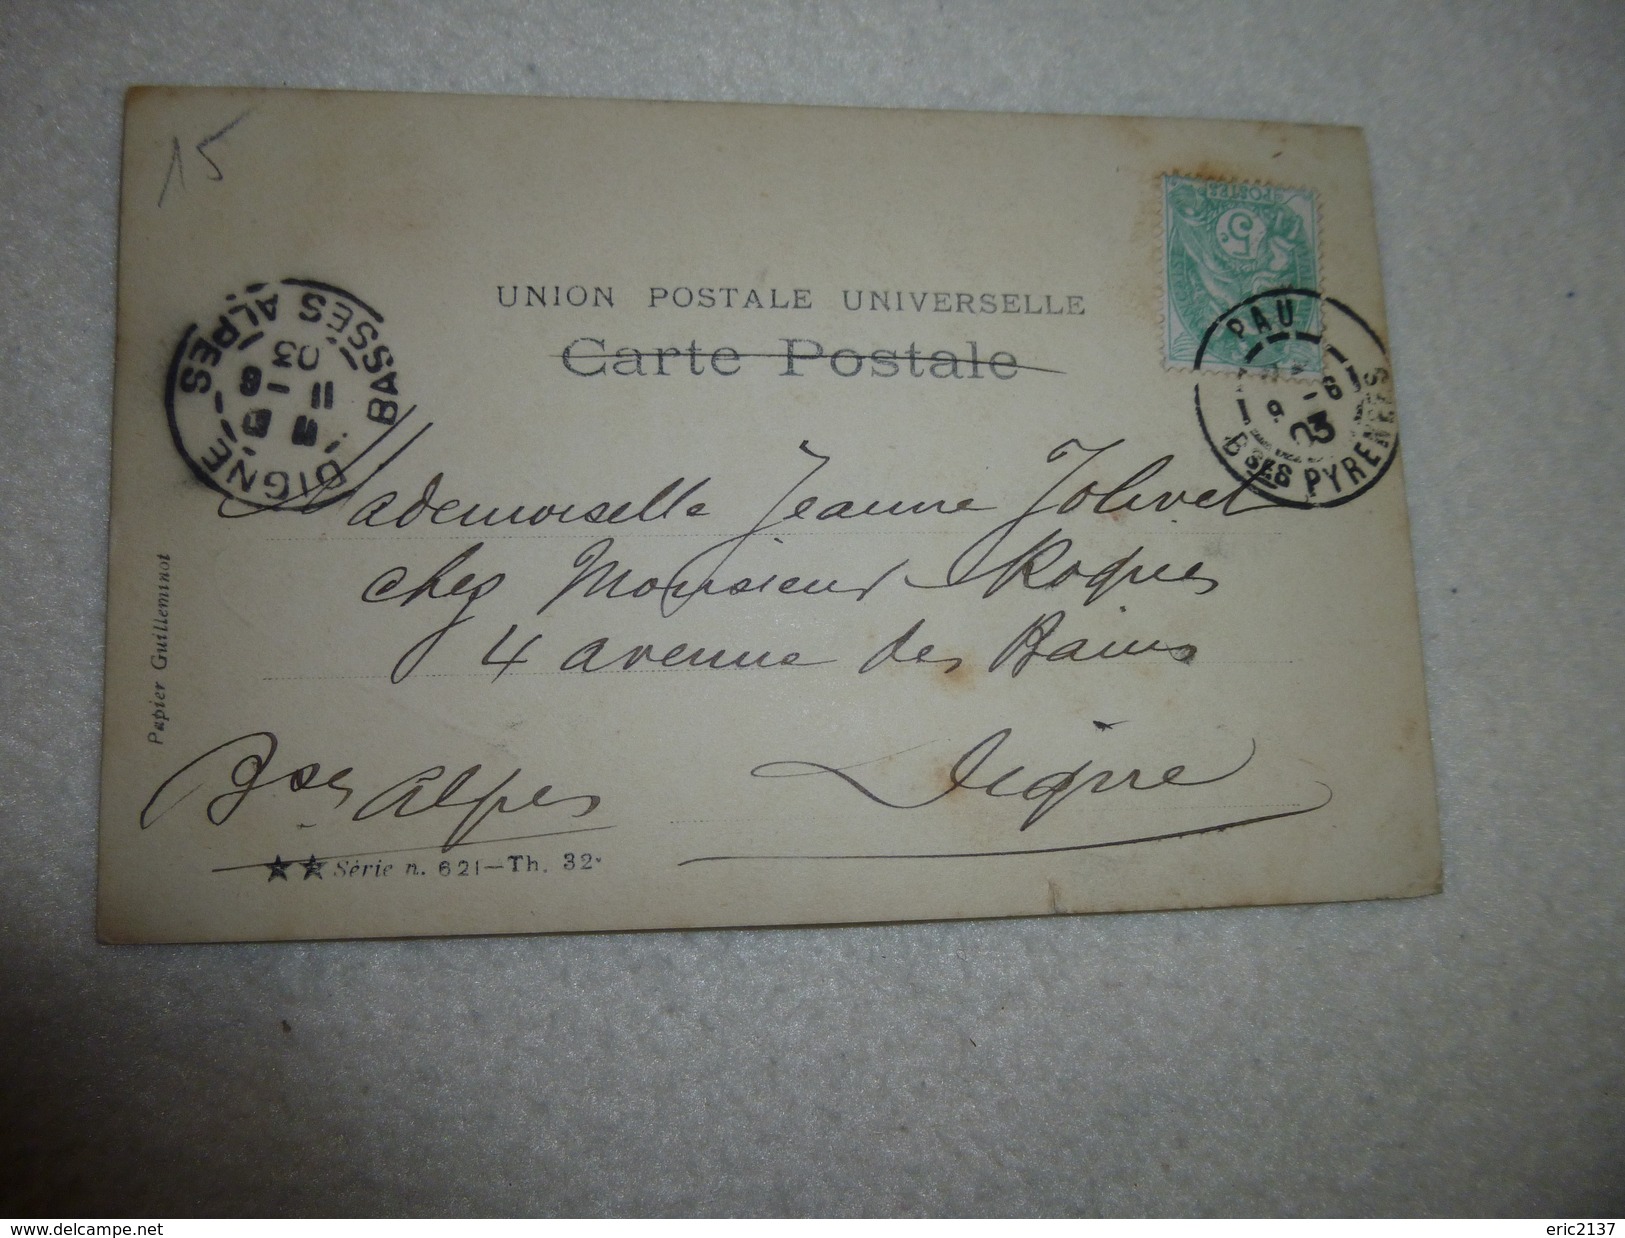 15
UNION POSTALE UNIVERSELLE
Carte Postale
POSTES
5
PAU
9 -6
03
BSES PYRENEES
DIGNE
BASSES ALPES
11 -6
03
Mademoiselle Jeanne Jolivet
chez Monsieur Roques
4 avenue des Bains
Digne
Bses Alpes
Papier Guilleminot
★★ Série n. 621—Th. 32
http://www.delcampe.net
eric2137